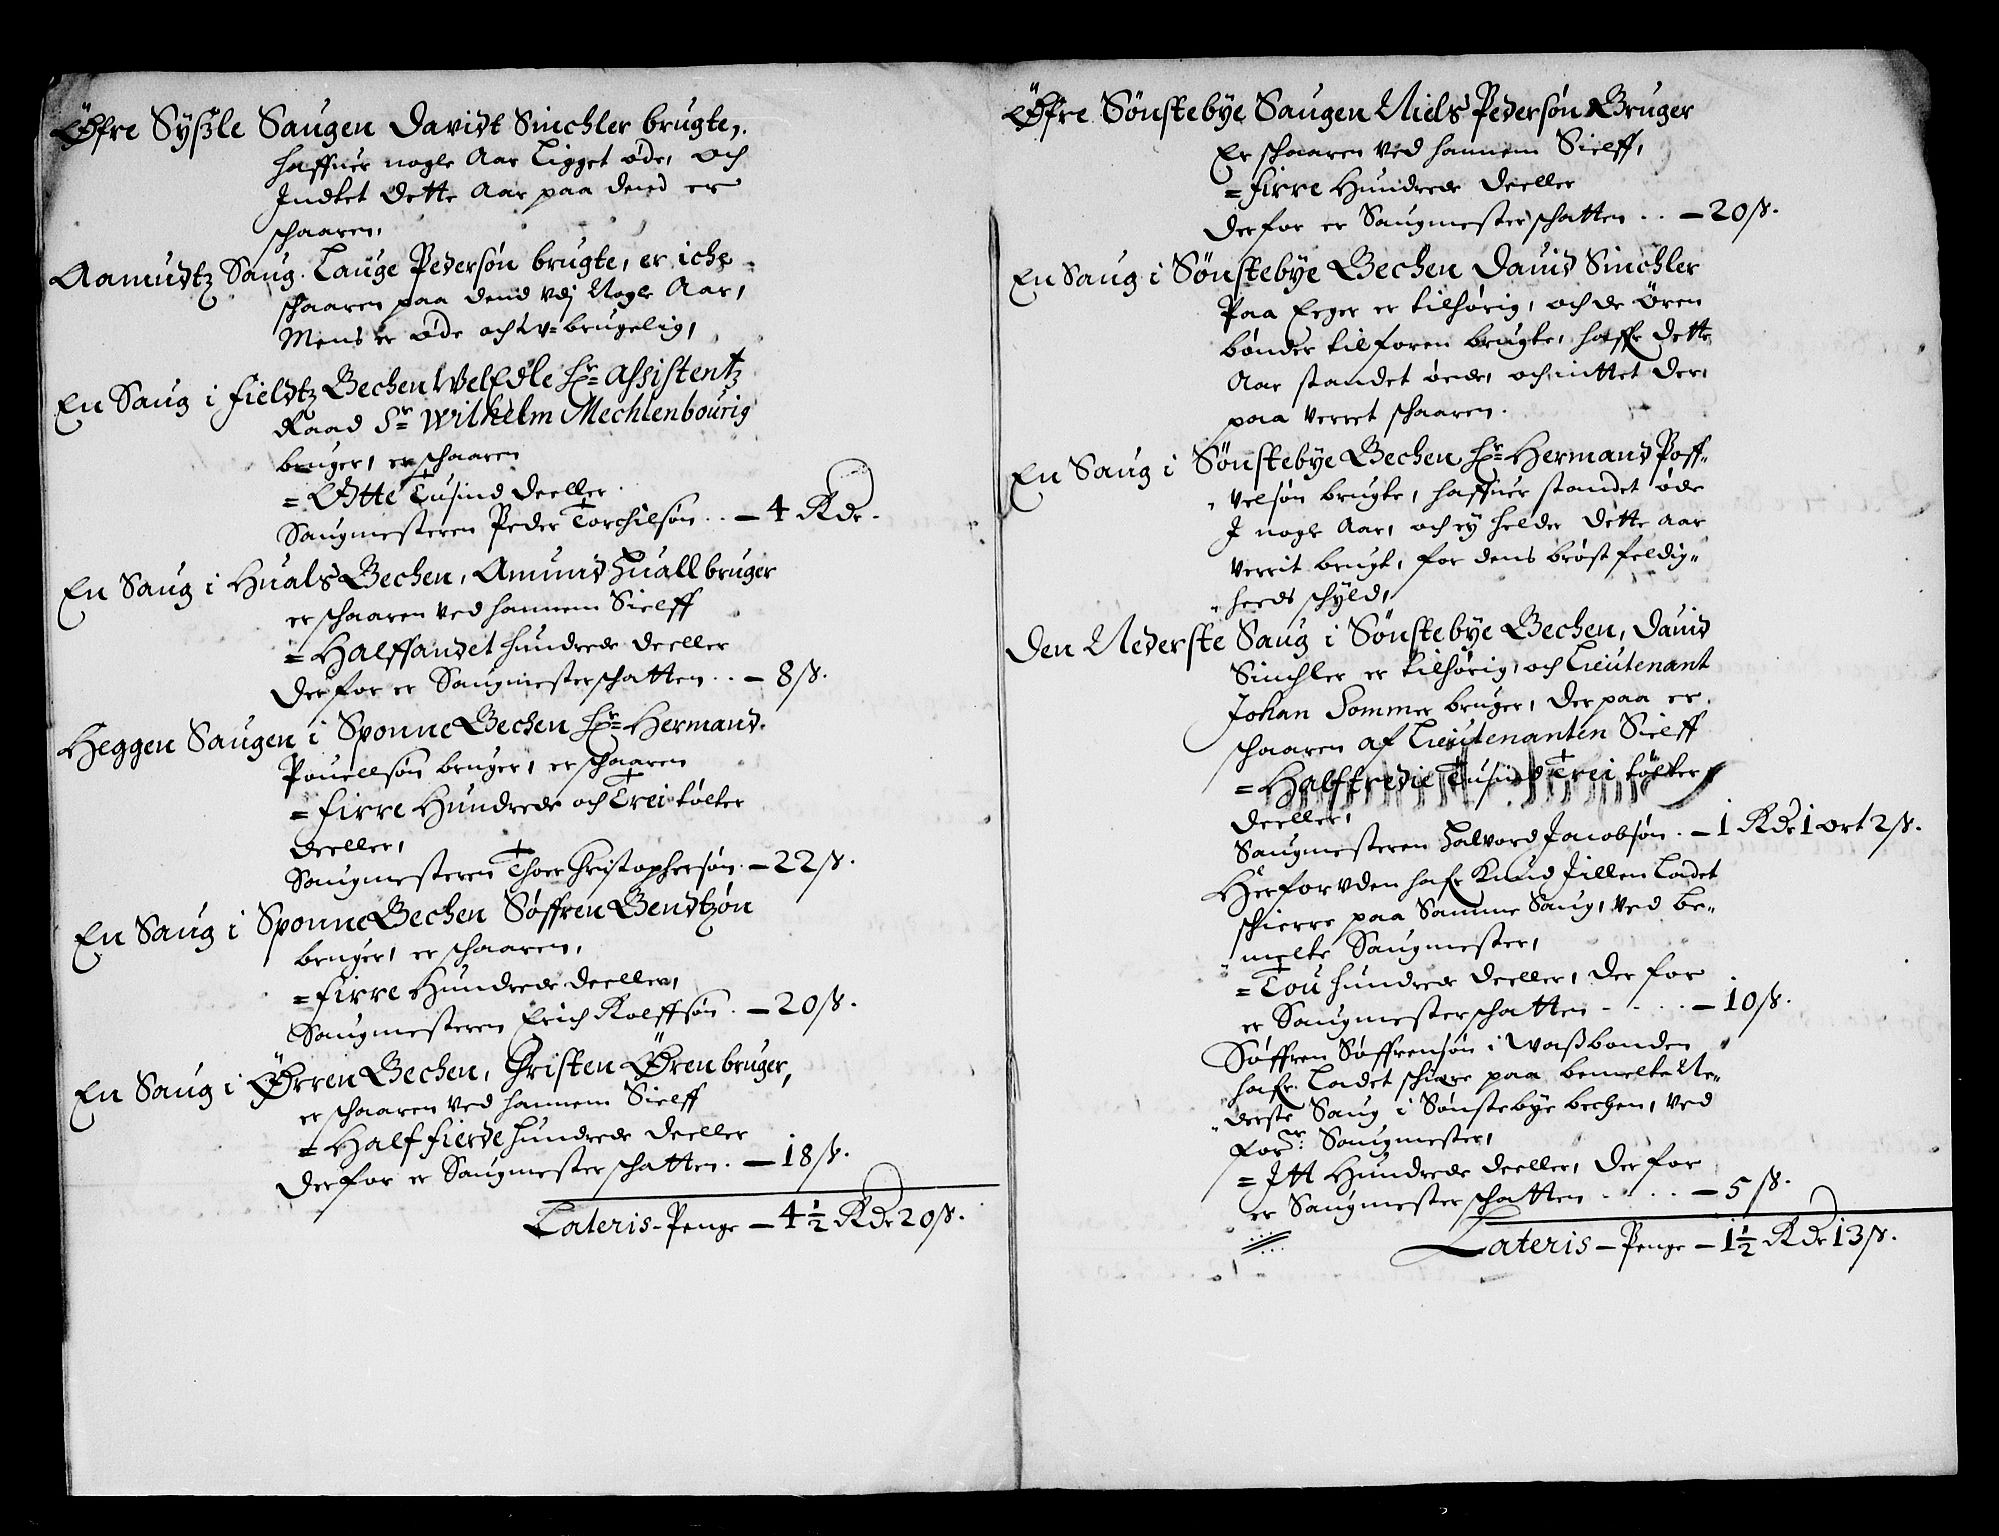 Øfre Sÿszle Saugen Davidt Sinchler brugte,
haffuer nogle Aar Ligget øde, och
Indtet dette Aar paa dend er
schaaren,
Aamudtz Saug. Lauge Pedersøn brugte, er iche
schaaren paa dend vdj Nogle Aar,
Mens er øde och V=brugelig,
En Saug i Fieldtz Bechen WelEdle Hr= Assistentz
Raad Sr= Wilhelm Mechlenbourig
bruger, er schaaren
= Otte Tusind deeller.
Saugmesteren Peder Torchilsøn .. – 4 Rdr.
En Saug i Huals Bechen, Amund Huall bruger
er schaaren ved hannem Sielff
= Halffandet hundrede deeller
Derfor er Saugmesterschatten .. – 8 ß.
Heggen Saugen i Sponne Bechen Hr= Hermand.
Pouellsøn bruger, er schaaren
= Firre Hundrede och Trei tølter
deeller,
Saugmesteren Thoer Christophersøn. – 22 ß.
En Saug i Sponne Bechen Søffren Bendtzøn
bruger, er schaaren,
= Firre Hundrede deeller,
Saugmesteren Erich Rolffsøn. – 20 ß.
En Saug i Ørren Bechen, Christen Øren bruger,
er schaaren ved hannem Sielff
= Half fierde Hundrede deeller
Derfor er Saugmesterschatten. – 18 ß.
Lateris – Penge – 4 1/2 Rdr 20 ß.
Øfre Sønstebÿe Saugen Niels Pedersøn Bruger
Er schaaren ved hannem Sielff,
= Firre Hundrede deeller
Derfor er Saugmesterschatten .. – 20 ß.
En Saug i Sønstebÿe Bechen David Sinchler
Paa Eger er tilhørig, och de Øren
bønder tilforen brugte, haffr dette
Aar standet øede, och inttet der,
paa verret schaaren.
En Saug i Sønstebÿe Bechen Hr= Hermand Poff=
velsøn brugte, haffuer standet øde
J nogle Aar, och ey helder dette Aar
verrit brugt, for dens brøstfeldig=
heeds schÿld,
Den Nederste Saug i Sønstebÿe Bechen, David
Sinchler er tilhørig, och Lieutenant
Johan Sommer bruger, der paa er
schaaren af Lieutenanten Sielff
= Halftredie Tusind Trei tølter
deeller,
Saugmesteren Halvord Jacobsøn. – 1 Rdr 1 ort 2 ß.
Herforvden hafr Knud Jillen Ladet
schierre paa Samme Saug, ved be=
melte Saugmester,
= Tou hundrede deeller, der for
er Saugmesterschatten . . . . – 10 ß.
Søffren Søffrensøn i Waßbonden
hafr. Ladet schiære paa bemelte Ne=
derste Saug i Sønstebÿe bechen, ved
forsr: Saugmester,
= Itt Hundrede deeller, der for
er Saugmesterschatten . . . . – 5 ß.
Lateris – Penge – 1 1/2 Rdr 13 ß.